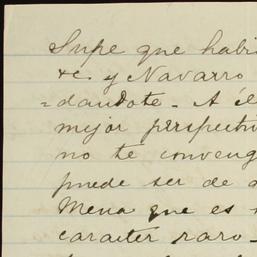 Supe que habi
te y Navarro
=dandote. A él
mejor perspectiv
no te conveng
puede ser de a
Mena que es
caracter raro-